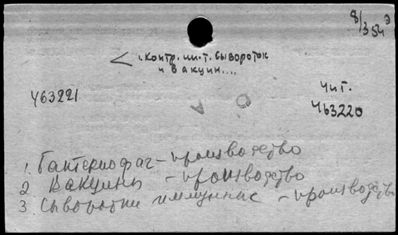 8/354 Э
< 1. контр. ин-т. сывороток
и вакцин....
Чит.
463221
463220
1. Бактериофаг - производство
2 Вакцины - производство
3 Сыворотки иммунные - производство